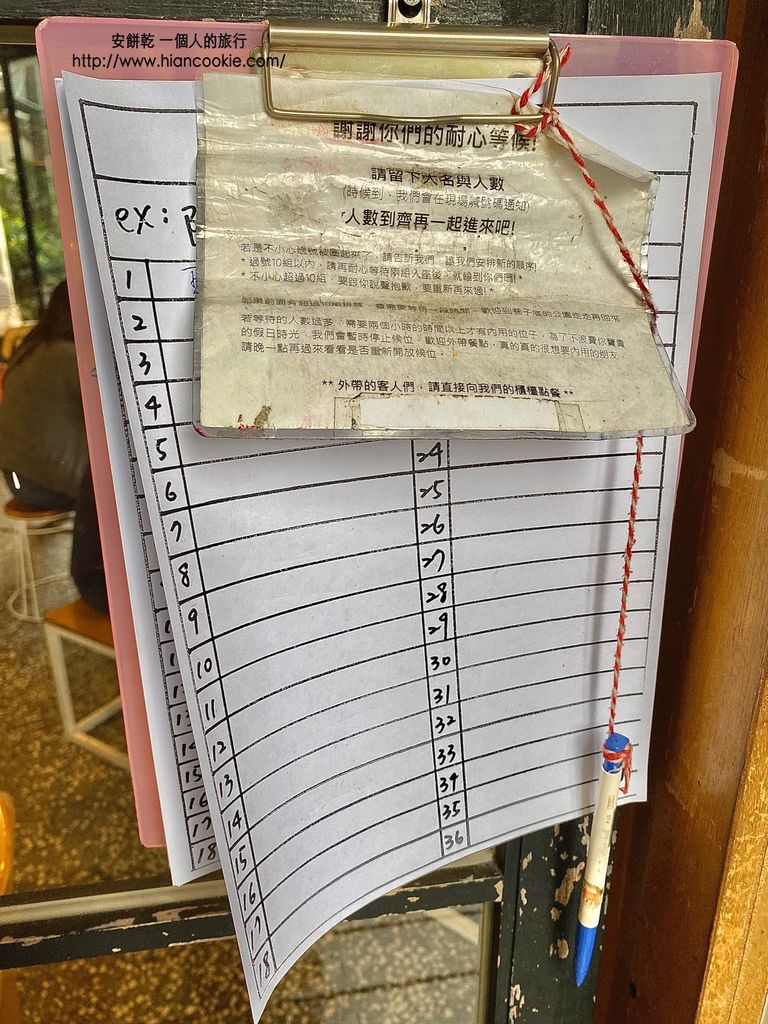 安餅乾 一個人的旅行
http://www.hiancookie.com/
謝謝你們的耐心等候!
請留下大名與人數
(時候到，我們會在現場喊號碼通知)
人數到齊再一起進來吧!
若是不小心過號被圈起來了，請告訴我們，讓我們安排新的順序!
* 過號10組以內，請再耐心等待兩組入座後，就輪到你們囉! *
* 不小心超過10組，要跟你說聲抱歉，要重新再來過! *
如果前面有超過10組排隊，會需要等待一段時間，歡迎到巷子底的公園走走再回來
若等待的人數過多，需要兩個小時的時間以上才有內用的位子，為了不浪費你寶貴
的假日時光，我們會暫時停止候位，歡迎外帶餐點，真的真的很想要內用的朋友
請晚一點再過來看看是否重新開放候位。
** 外帶的客人們，請直接向我們的櫃檯點餐 **
ex:
1
2
3
4
5
6
7
8
9
10
11
12
13
14
15
16
17
18
24
25
26
27
28
29
30
31
32
33
34
35
36
14
15
16
17
18